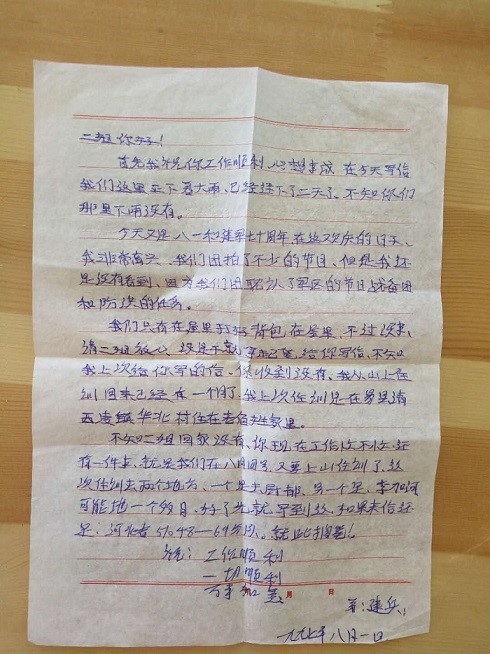 二姐你好！
首先我祝你工作顺利，心想事成，在今天写信
我们这里正下着大雨，已经连下了二天了，不知你们
那里下雨没有。
今天又是八一和建军七十周年，在这欢庆的日子，
我非常高兴，我们团拍了不少的节目，但是我还
是没有看到，因为我们团职认了军区的节日战备团
和防洪的任务。
我们只有在屋里打好背包在屋里，不过没事，
请二姐放心，没是干就拿起笔给你写信，不知
我上次给你写的信，你收到没有，我从山上住
训回来已经有一个月了，我上次住训是在易县清
西陵镇华北村住在老百姓家里。
不知二姐回家没有，你现在工作忙不忙，还
有一件事，就是我们在八月四号又要上山住训了，这
次住训去两个地方，一个是 另一个是
可能地一个多月，好了也就写到这，如果来信还
是：河北省51048—69分队，就此搁笔！
祝：工作顺利
一切顺利
万事如意
月 日
弟：建兵
一九九七年八月一日